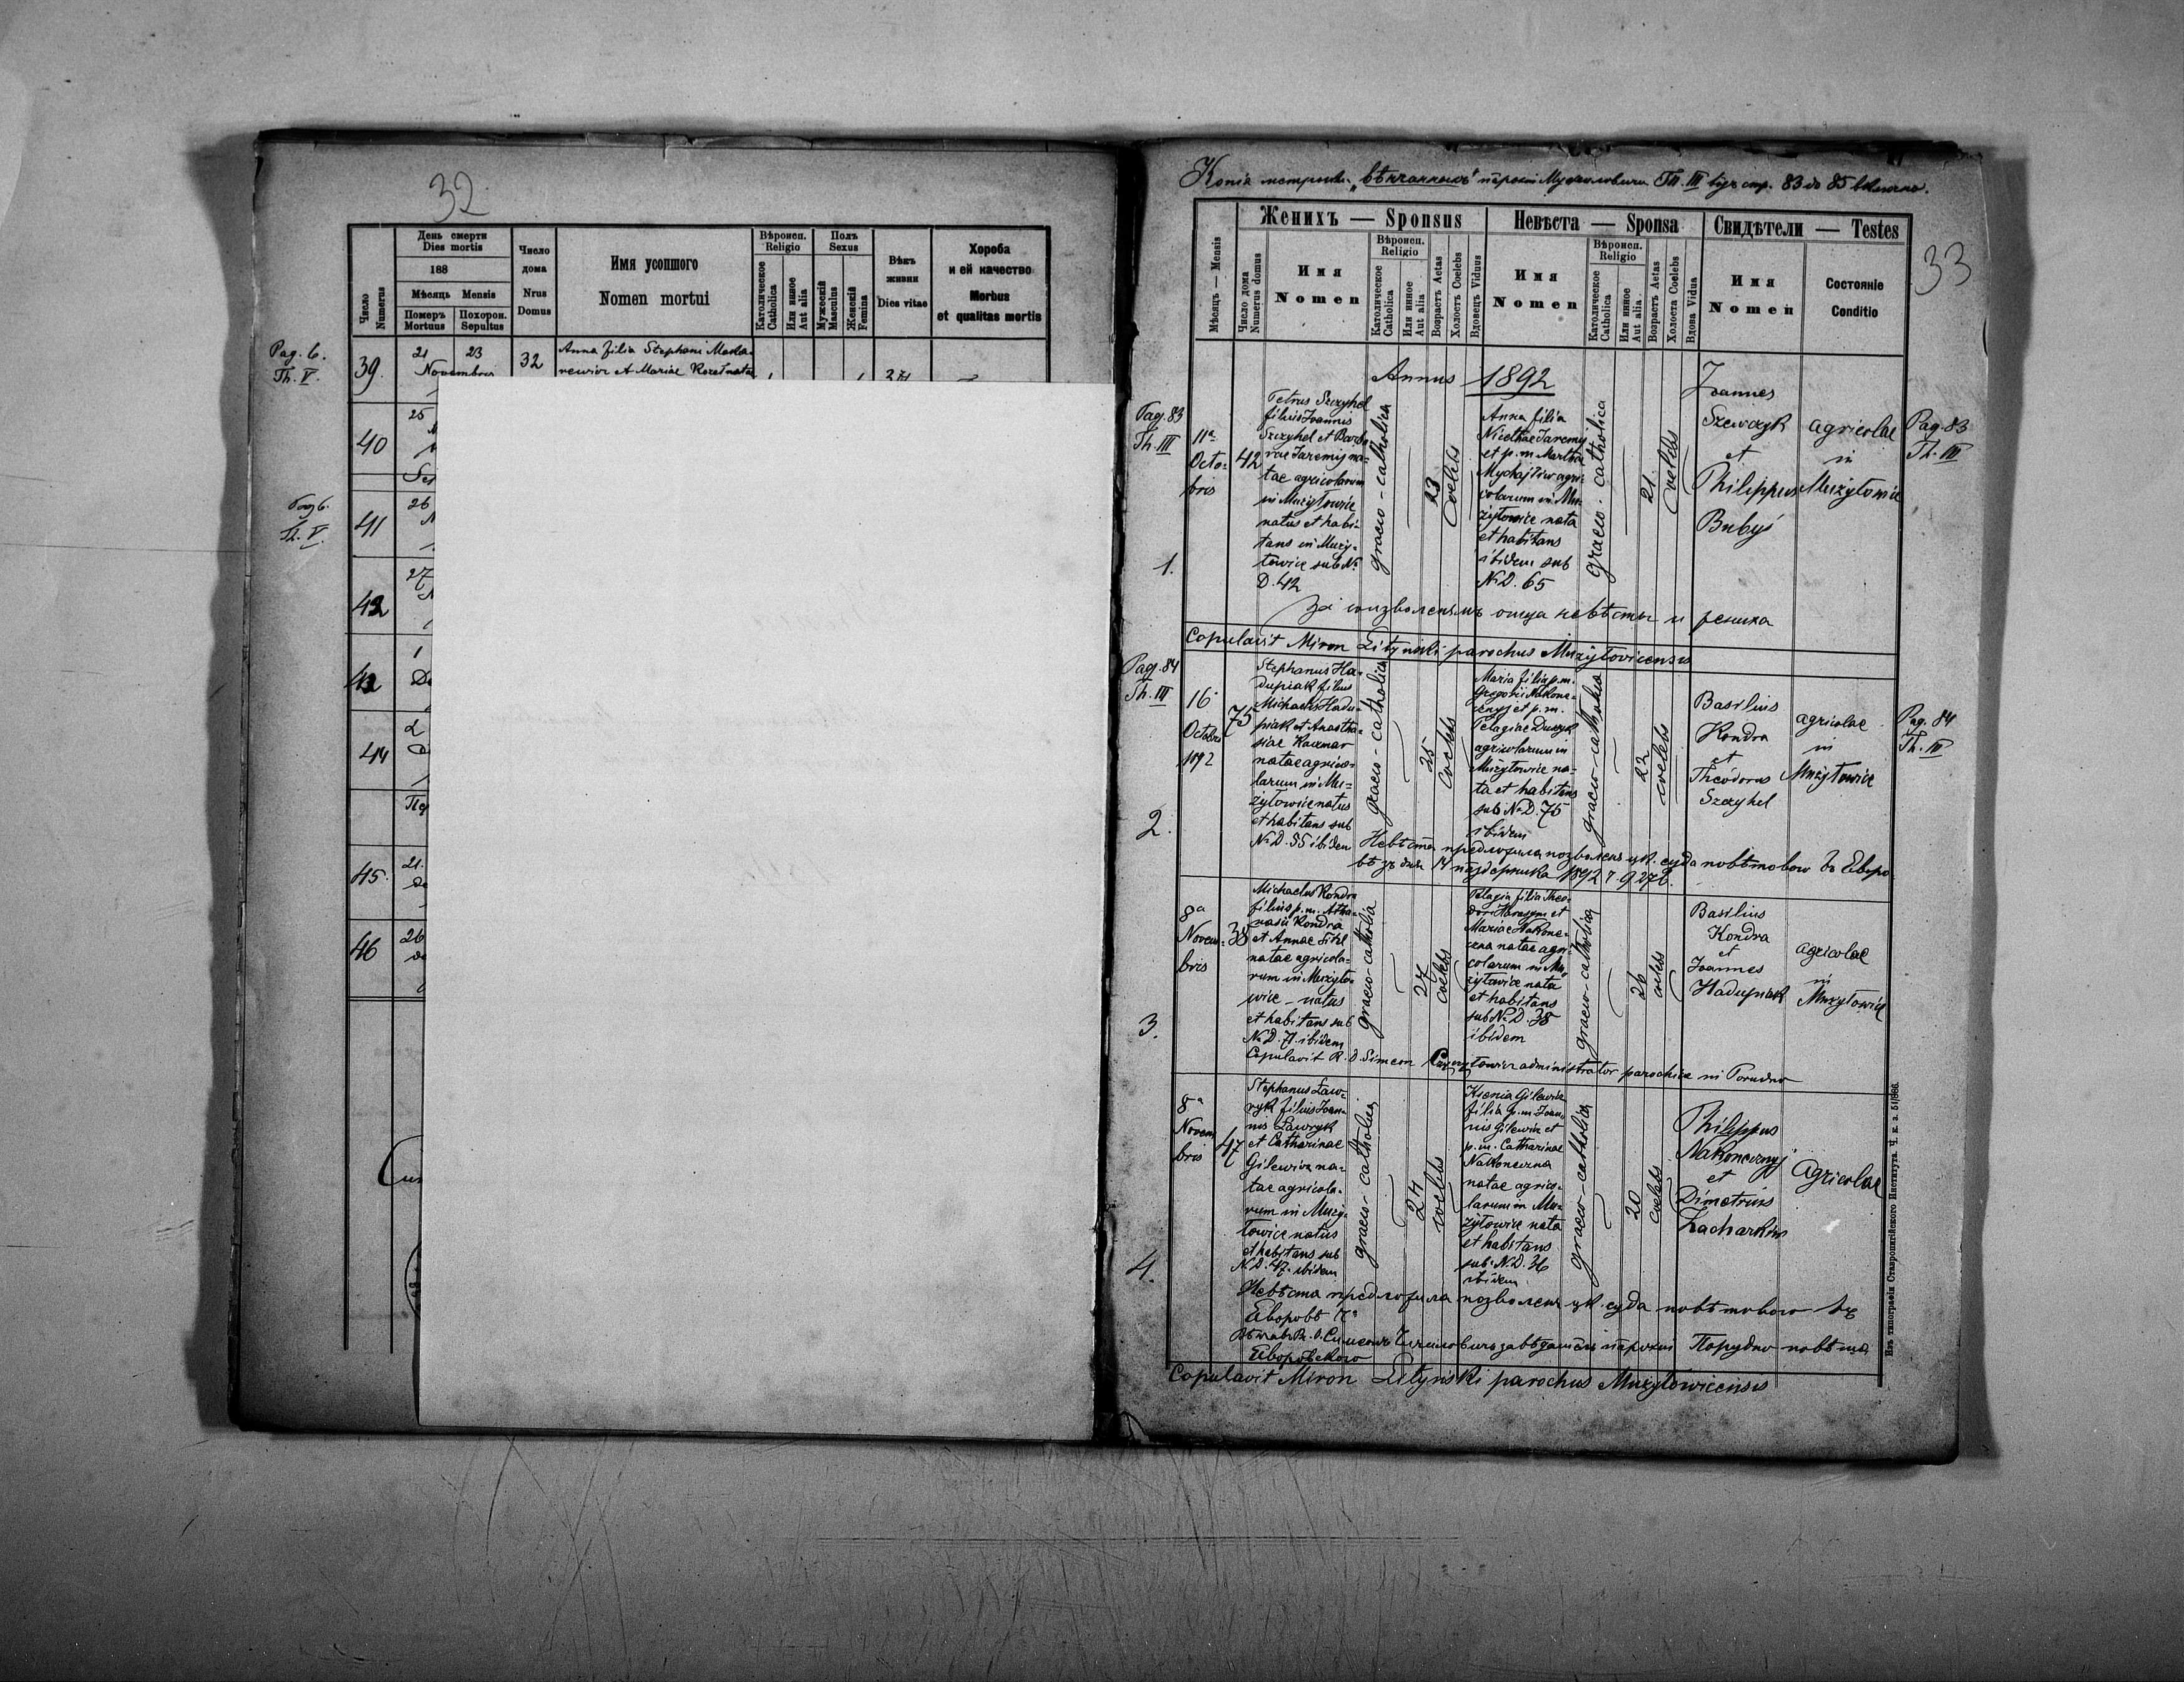 32
День смерти
Dies mortis
188
Мѣсяць Mensis
Померъ Mortuus
Похорон. Sepultus
Число Numerus
Число дома
Nrus Domus
Имя усопшого
Nomen mortui
Вѣроисп. Religio
Католическое Catholica
Или инное Aut alia
Полъ Sexus
Мужескій Masculus
Женскій Femina
Вѣкъ жизни
Dies vitae
Хороба и ей качество
Morbus et qualitas mortis
Pag. 6.
Th. V.
39.
21 23
Novembris
32
Anna filia Stephani
et Mariae
40
25
Pag 6.
Th. V.
41
26
42
27
43
1
44
2
45.
21.
46
26
33
Копія метрики „вѣнчанныхъ" Тп. III стр. 83 до 85
Женихъ — Sponsus
Невѣста — Sponsa
Свидѣтели — Testes
Мѣсяцъ — Mensis
Число дома
Numerus domus
Имя
Nomen
Вѣроисп. Religio
Католическое Catholica
Или инное Aut alia
Возрастъ Aetas
Холостъ Coelebs
Вдовецъ Viduus
Имя
Nomen
Вѣроисп. Religio
Католическое Catholica
Или инное Aut alia
Возрастъ Aetas
Холоста Coelebs
Вдова Vidua
Имя
Nomen
Состояніе
Conditio
Annus 1892
Pag. 83
Th. III
1.
11a
Octo-
bris
42
Petrus Szczyhel
filius Joannis
Szczyhel et Barba-
rae Jaremij na-
tae agricolarum
in Mużyłowice
natus et habi-
tans in Muży-
łowice sub N.
D. 42
graeco-catholica
23
Coelebs
Anna filia
Nicetae Jaremij
et p.m. Martha
Mychajłiw agri-
colarum in Mu-
żyłowice nata
et habitans
ibidem sub
N.D. 65
graeco-catholica
21
Coelebs
Joannes
Szewczyk
et
Philippus
Bubyś
agricolae
in
Mużyłowice
Pag. 83
Th. III
отца невѣсты и
Copulavit Miron Lityński parochus Mużyłovicensis
Pag. 84
Th. III
2.
16
Octobris
1892
75
Stephanus Ha-
dupiak filius
Michaelis Hadu-
piak et Anastha-
siae Kaczmar
natae agrico-
larum in Mu-
żyłowice natus
et habitans sub
N.D. 55 ibidem
graeco-catholica
25
Coelebs
Maria filia p.m.
Gregorii Nakone-
cznyj et p.m.
Pelagiae
agricolarum in
Mużyłowice na-
ta et habitans
sub N.D. 75
ibidem
graeco-catholica
22
coelebs
Basilius
Kondra
et
Theodorus
Szczyhel
agricolae
in
Mużyłowice
Pag. 84
Th. III
Невѣста предложила позволенье цк. суда повѣтового въ Еворо
вѣ зъ дня 14 паздерника 1892
3.
8a
Novem-
bris
38
Michaelus Kondra
filius p.m. Atha-
nasii Kondra
et Annae
natae agricola-
rum in Mużyło-
wice - natus
et habitans sub
N.D. 71. ibidem
graeco-catholica
27
coelebs
Pelagia filia Theo-
dori Harasym et
Mariae Nakone-
czna natae agri-
colarum in Mu-
żyłowice nata
et habitans
sub N.D. 38
ibidem
graeco-catholica
26
coelebs
Basilius
Kondra
et
Joannes
Hadupiak
agricolae
in
Mużyłowice
Copulavit R.D. Simeon administrator parochiae in Porudno
4.
8a
Novem
bris
47
Stephanus Ław-
ryk filius Joan-
nis Ławryk
et Catharinae
Gilewicz na-
tae agricola-
rum in Muży-
łowice natus
et habitans sub
N.D. 47. ibidem
graeco-catholica
24
coelebs
Ksenia Gilewicz
filia p.m. Joan-
nis Gilewicz et
p.m. Catharinae
Nakoneczna
natae agrico-
larum in Mu-
żyłowice nata
et habitans
sub. N.D. 36
ibidem
graeco-catholica
20
coelebs
Philippus
Nakonecznyj
et
Dimetrius
Zacharkiw
agricolae
Невѣста предложила позволенье цк. суда повѣтового въ
Еворовѣ
Симеонъ парохіи Порудно повѣта
Еворовского
Copulavit Miron Lityński parochus Mużyłowicensis
Изъ типографіи Ставропигійского Института. Ч. к. з. 51/886.